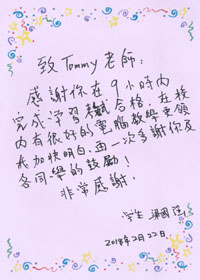 致Tommy老師：
感謝你在9小時內
完成學習　　合格，在校
內有很好的電腦教學更領
我加快明白，再一次多謝你及
各同學的鼓勵！
非常感謝。
學生
2018年2月22日